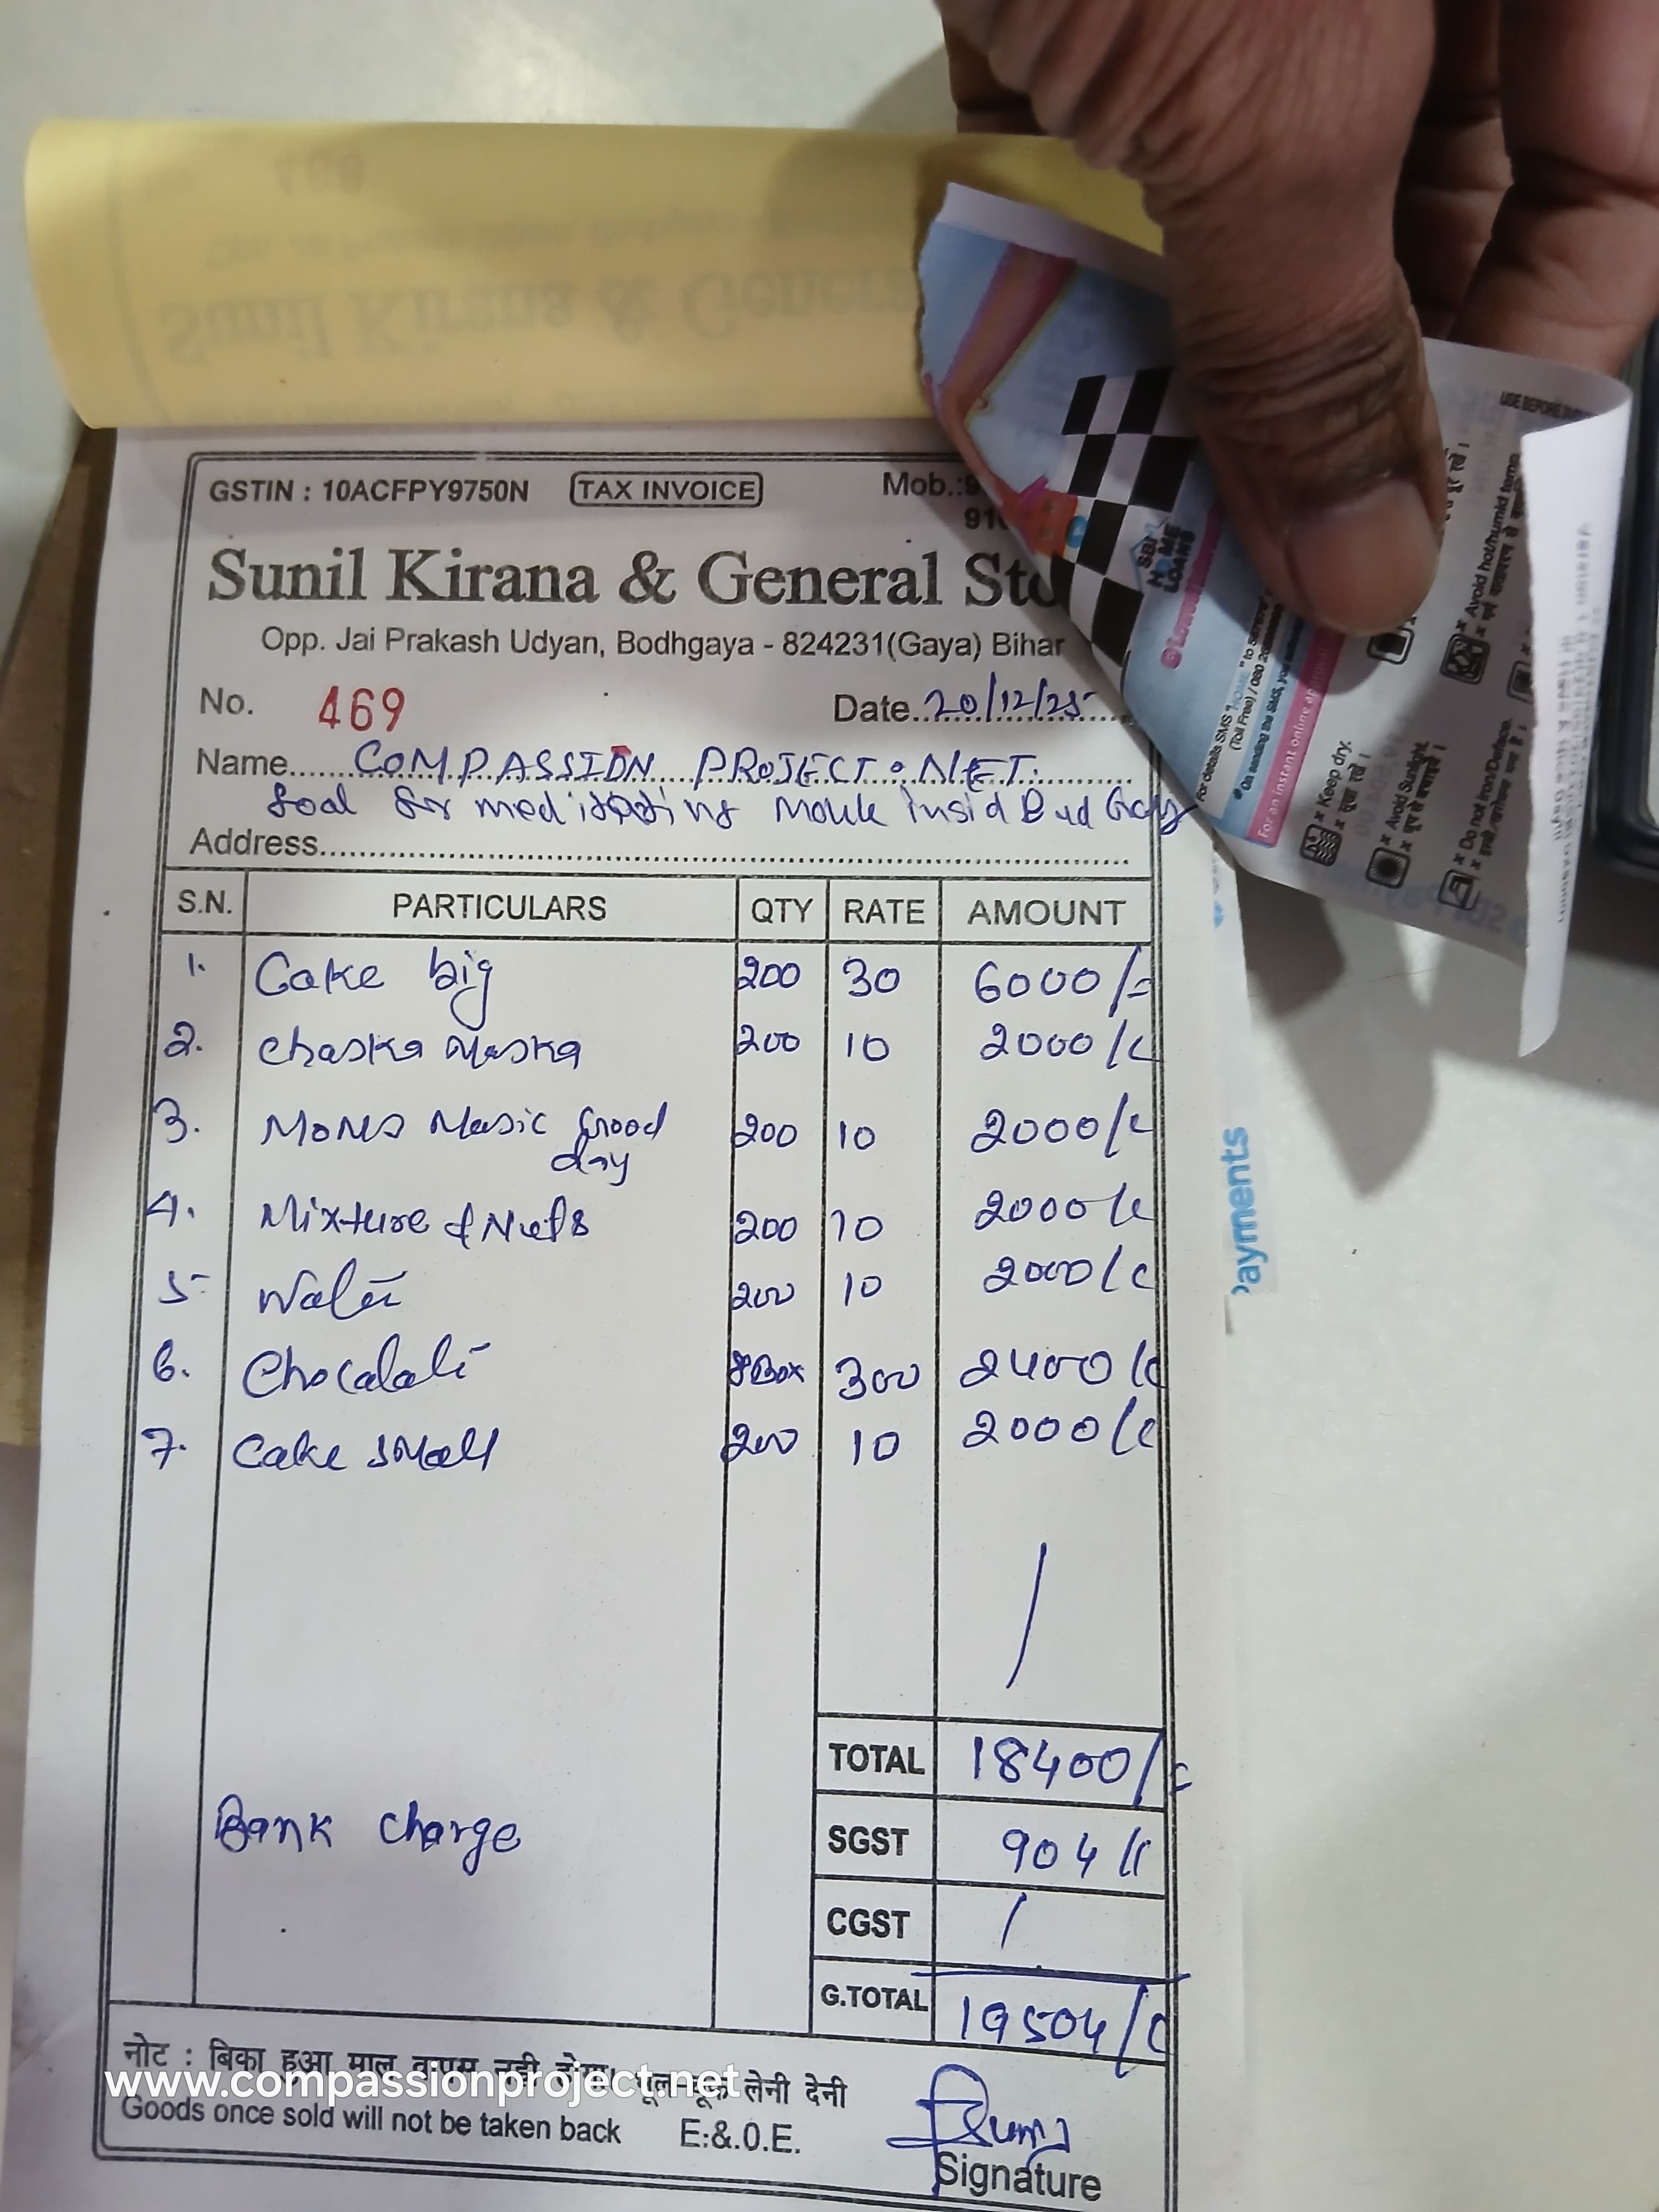 GSTIN : 10ACFPY9750N TAX INVOICE Mob.:9
91
Sunil Kirana & General Sto
Opp. Jai Prakash Udyan, Bodhgaya - 824231(Gaya) Bihar
No. 469 Date 20/12/25
Name COMPASSION PROJECT.NET.
for inside
Address
S.N. PARTICULARS QTY RATE AMOUNT
1. Cake big 200 30 6000/=
2. Chaska Maska 200 10 2000/=
3. Moms Masic Good 200 10 2000/=
day
4. Mixture & Nuts 200 10 2000/=
5- Water 200 10 2000/=
6. Chocalate 8Box 300 2400/=
7. Cake small 200 10 2000/=
TOTAL 18400/=
Bank charge SGST 904/=
CGST /
G.TOTAL 19504/=
नोट : बिका हुआ माल वापस नही होगा। भूल-चूक लेनी देनी
Goods once sold will not be taken back E:&.O.E.
Signature
www.compassionproject.net
sbi
HOME
LOANS
For details SMS "HOME" to
(Toll Free) / 080
For an instant online approval
USE BEFORE
Keep dry.
सूखा रखें।
Avoid Sunlight.
धूप से बचाइये।
Avoid hot/humid temp.
Do not Iron/Deface.
ayments